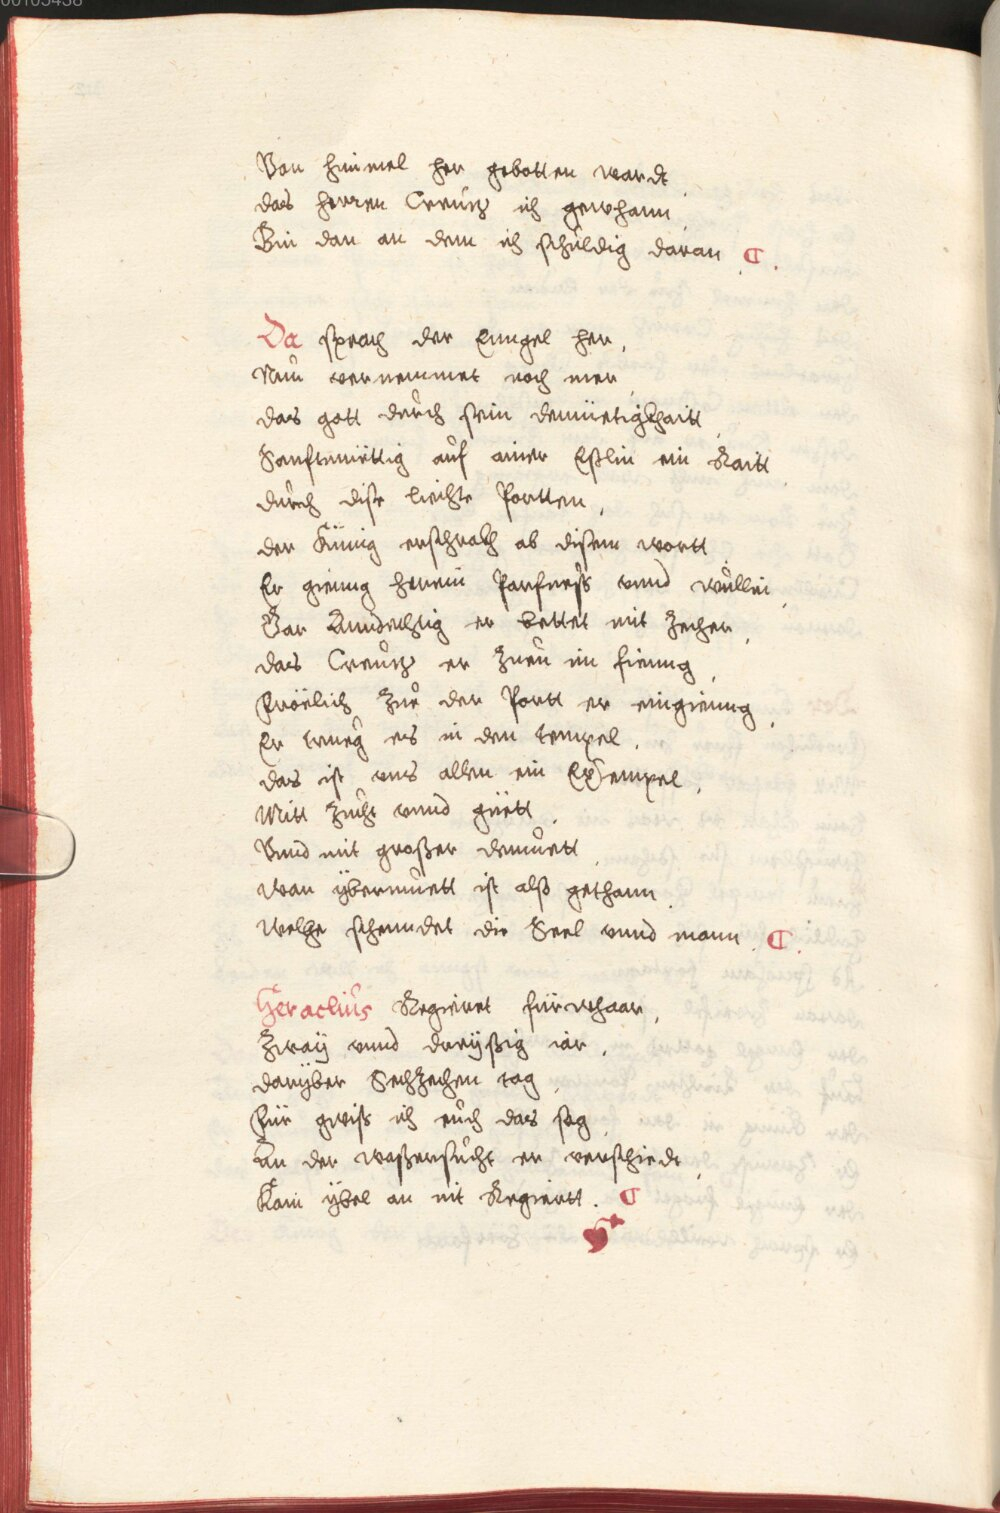 00103438
Von himel her gebotten wardt
das herren Creutz ich gewhann,
Bin dan an dem ich schuldig daran ¶.
Da sprach der Enngel her,
Nun vernemmet noch mer,
das gott durch sein demüetigkhaitt,
Sanftmüettig auf ainer Eßlin ein Raitt
durch dise liechte Portten,
der Künig erschrakh ab disem wortt
Er gieng herein Parfueß vnnd wullin,
Gar Anndechtig er bettet mit Zecher,
das Creutz er Zueu im fieng,
Frölich Zue der Portt er eingieng,
Er trueg es in den tempel,
das ist vns allen ein Exempel,
Mitt Zucht vnnd güett,
Vnnd mit großer demuett,
wan übermuett ist alß gethann,
Welche schenndet die Seel vnnd mann ¶.
Heraclius Regieret fürwhaar,
Zway vnnd dreyßig iar,
darüber Sechzechen tag,
Für gwiß ich euch das sag,
An der waßersucht er verschiedt,
Kain übel an nit Regiertt. ¶